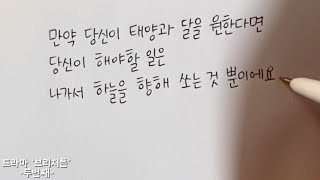 만약 당신이 태양과 달을 원한다면
당신이 해야할 일은
나가서 하늘을 향해 쏘는 것 뿐이에요
드라마 '브리저튼'
-두번째-